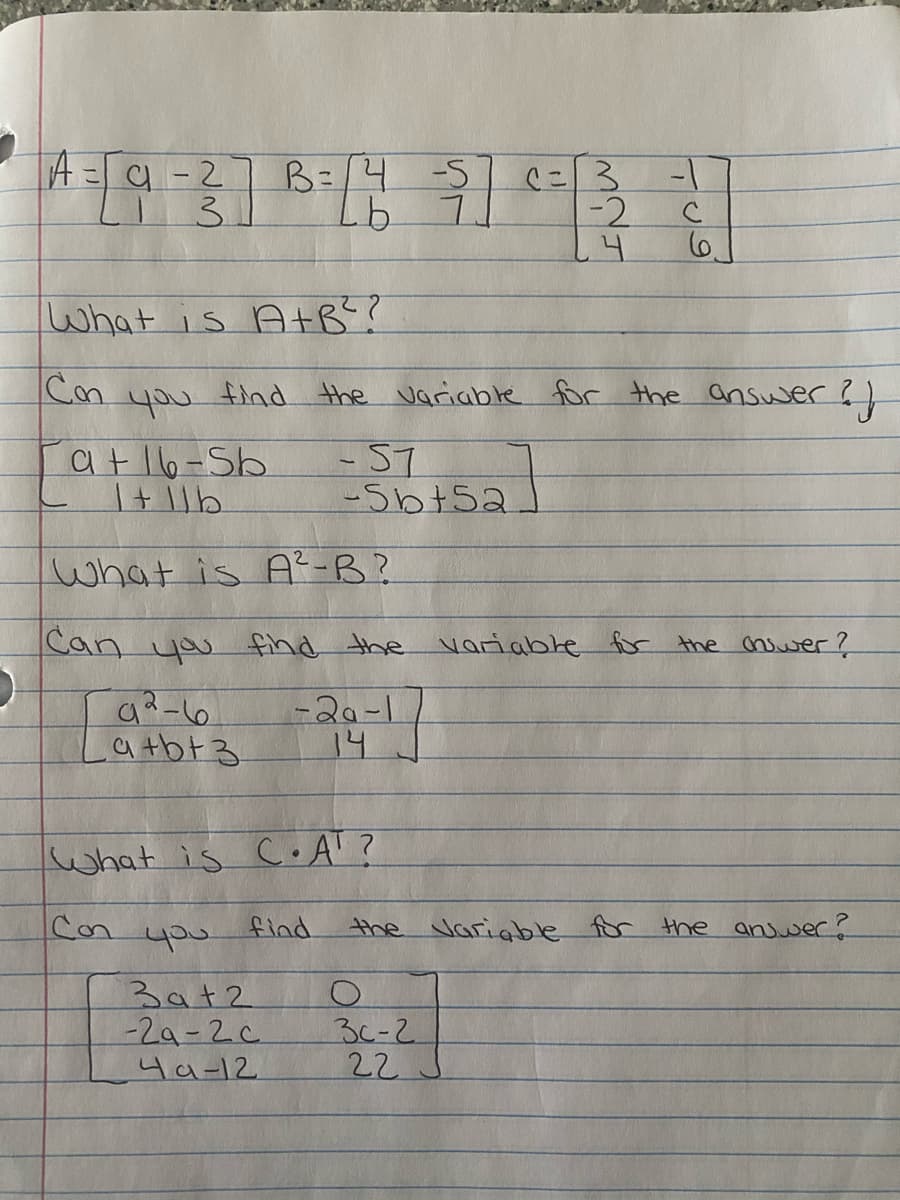 A = [ a -2 B = [ 4 -5 ] C = [ 3 -1
1 3 ] b 7 -2 c
4 6 ]
What is A+B²?
Can you find the variable for the answer?
[ a+16-5b -57
1+11b -5b+52 ]
What is A²-B?
Can you find the variable for the answer?
[ a²-6 -2a-1
a+b+3 14 ]
What is C·Aᵀ?
Can you find the variable for the answer?
[ 3a+2 0
-2a-2c 3c-2
4a-12 22 ]